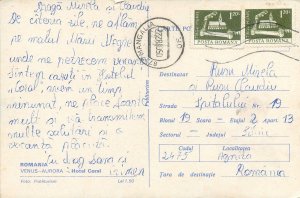 Dragă Mirela și Claudiu
De câteva zile, ne aflăm
pe malul Mării Negre
unde ne petrecem
Sîntem cazați în Hotelul
Coral, avem un timp
minunat, ne place foarte
mult și vă transmitem
multe salutări și o
vacanță plăcută
Cu drag
ROMANIA
VENUS-AURORA Hotel Coral
Foto: Publiturism
Lei 1,50
MANGALIA
1,20
POSTA ROMANA
POSTA ROMANA
Destinatar Rusu Mirela
și Rusu Claudiu
Strada Spitalului Nr. 19
Blocul 19 Scara 2 Etaj 2 Apart. 13
Sectorul Județul Sibiu
Codul Localitatea
2475 Agnita
Țara de destinație România